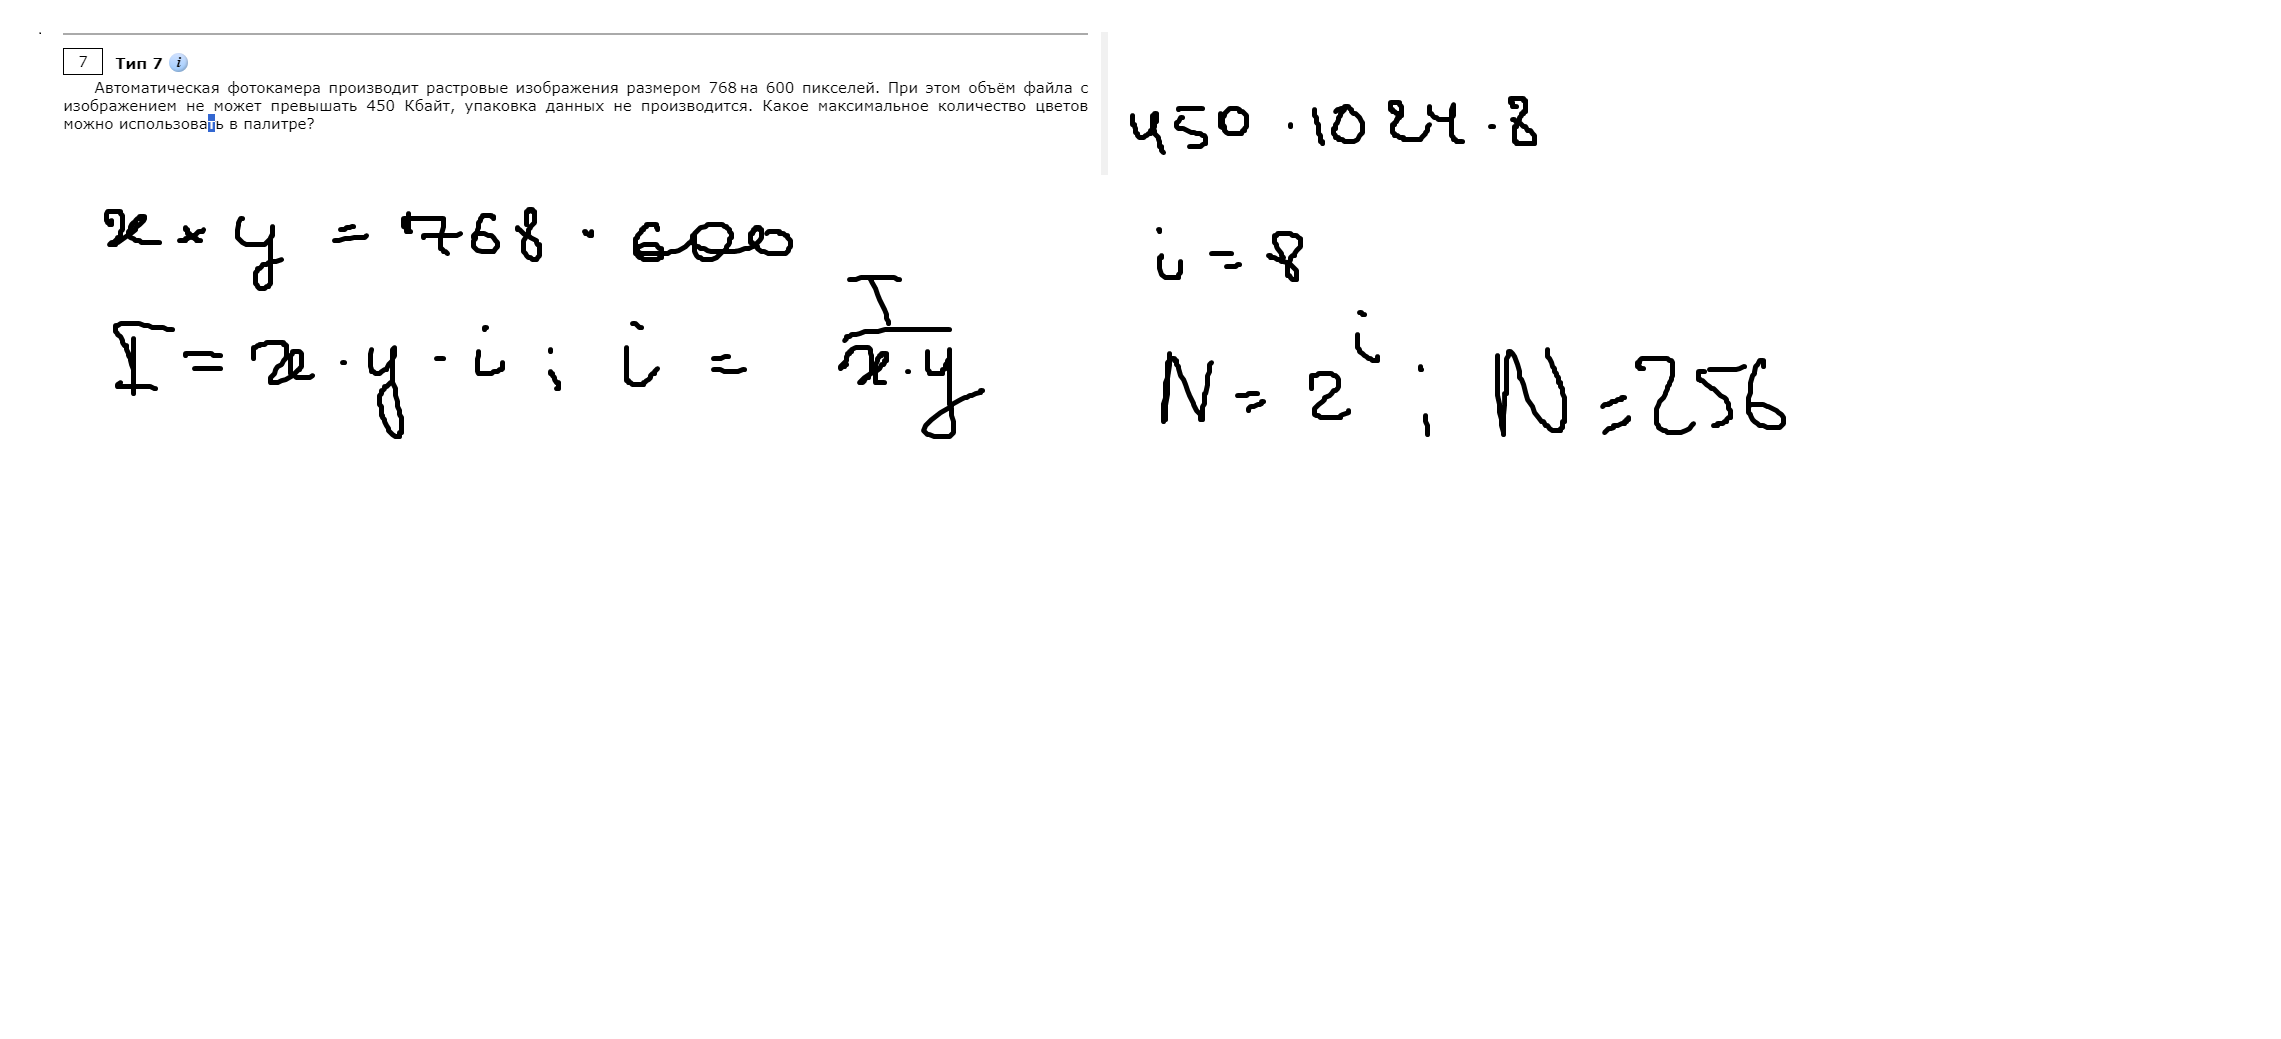 7 Тип 7 i
Автоматическая фотокамера производит растровые изображения размером 768 на 600 пикселей. При этом объём файла с
изображением не может превышать 450 Кбайт, упаковка данных не производится. Какое максимальное количество цветов
можно использовать в палитре?
450 · 1024 · 8
x × y = 768 · 600
i = 8
I = x · y · i ; i = I / x · y
N = 2^i ; N = 256